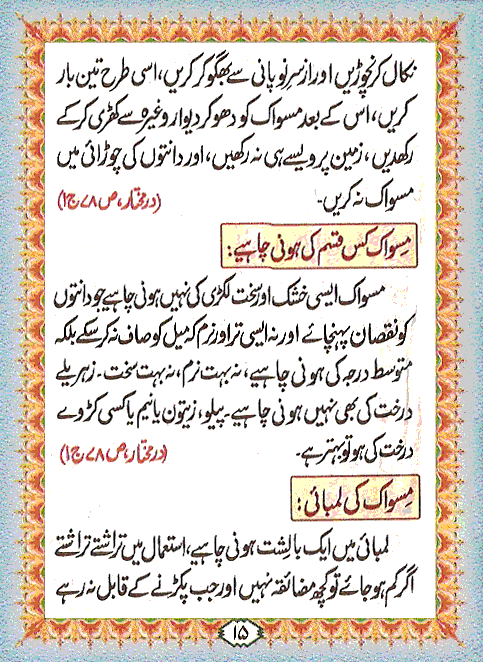 نکال کر نچوڑیں اور از سرِ نو پانی سے بھگو کر کریں، اسی طرح تین بار
کریں، اس کے بعد مسواک کو دھو کر دیوار وغیرہ سے کھڑی کر کے
رکھدیں، زمین پر ویسے ہی نہ رکھیں، اور دانتوں کی چوڑائی میں
مسواک نہ کریں۔ (درمختار، ص ۷۸ ج۱)
مسواک کس قسم کی ہونی چاہیے:
مسواک ایسی خشک اور سخت لکڑی کی نہیں ہونی چاہیے جو دانتوں
کو نقصان پہنچائے اور نہ ایسی تر اور نرم کہ میل کو صاف نہ کر سکے بلکہ
متوسط درجہ کی ہونی چاہیے، نہ بہت نرم، نہ بہت سخت۔ زہریلے
درخت کی بھی نہیں ہونی چاہیے۔ پیلو، زیتون یا نیم یا کسی کڑوے
درخت کی ہو تو بہتر ہے۔ (درمختار، ص ۷۸ ج۱)
مسواک کی لمبائی:
لمبائی میں ایک بالشت ہونی چاہیے، استعمال میں تراشتے تراشتے
اگر کم ہو جائے تو کچھ مضائقہ نہیں اور جب پکڑنے کے قابل نہ رہے
۱۵